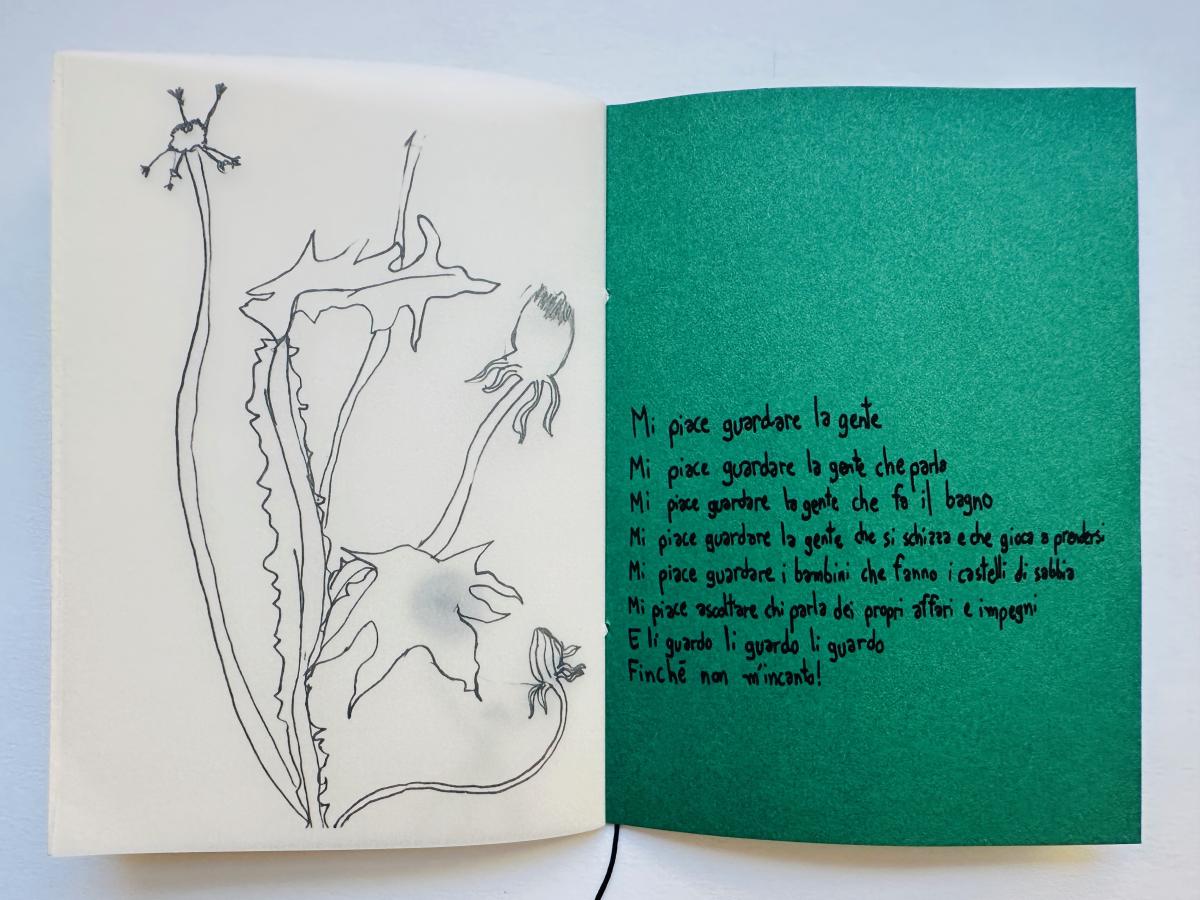 Mi piace guardare la gente
Mi piace guardare la gente che parla
Mi piace guardare la gente che fa il bagno
Mi piace guardare la gente che si schizza e che gioca a prendersi
Mi piace guardare i bambini che fanno i castelli di sabbia
Mi piace ascoltare chi parla dei propri affari e impegni
E li guardo li guardo li guardo
Finché non m'incanto!